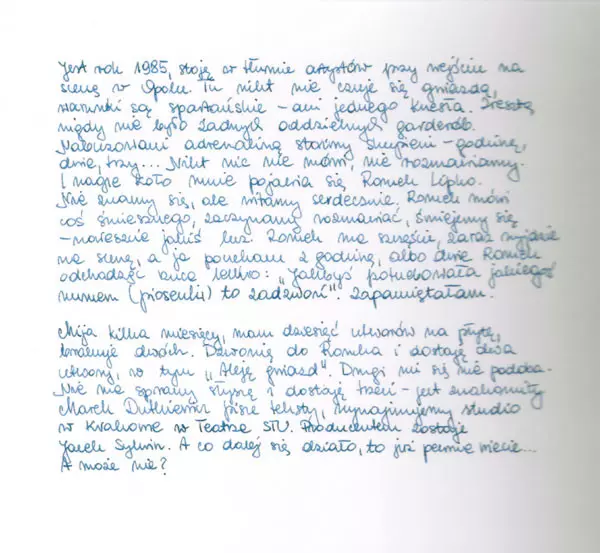 Jest rok 1985, stoję w tłumie artystów przy wejściu na
scenę w Opolu. Tu nikt nie czuje się gwiazdą,
warunki są spartańskie – ani jednego krzesła. Zresztą
nigdy nie było żadnych oddzielnych garderób.
Nabuzowani adrenaliną stoimy skupieni – godzinę,
dwie, trzy... Nikt nic nie mówi, nie rozmawiamy.
I nagle koło mnie pojawia się Romek Lipko.
Nie znamy się, ale witamy serdecznie. Romek mówi
coś śmiesznego, zaczynamy rozmawiać, śmiejemy się
– nareszcie jakiś luz. Romek ma szczęście, zaraz wyjdzie
na scenę, a ja poczekam 2 godziny, albo dwie. Romek
odchodząc rzuca lekko: "Jakbyś potrzebowała jakiegoś
numeru (piosenki) to zadzwoń". Zapamiętałam.
Mija kilka miesięcy, mam dziesięć utworów na płytę,
brakuje dwóch. Dzwonię do Romka i dostaję dwa
utwory, w tym "Aleję gwiazd". Drugi mi się nie podoba.
Nie ma sprawy słyszę i dostaję trzeci – jest znakomity
Marek Dutkiewicz pisze teksty, wynajmujemy studio
w Krakowie w Teatrze STU. Producentem zostaje
Jacek Sylwin. A co dalej się działo, to już pewnie wiecie...
A może nie?